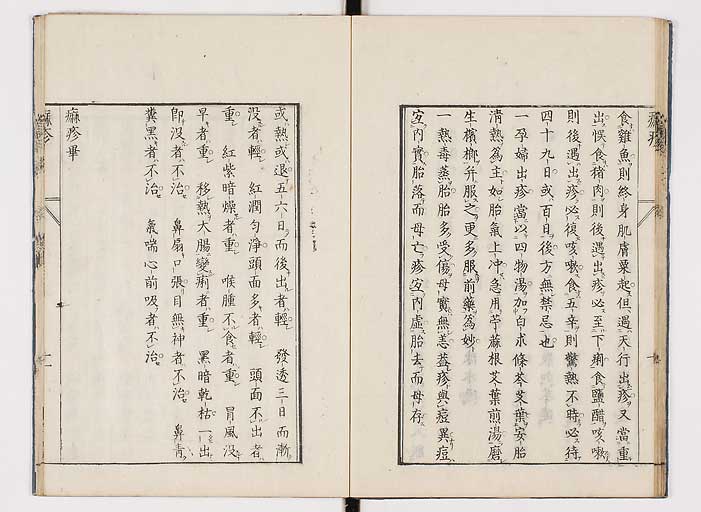 食雞魚則終身肌膚粟起但遇天行出疹又當重
出悞食猪肉則後遇出疹必至下痢食鹽醋咳嗽
則後遇出疹必復咳嗽食五辛則驚熱不時必待
四十九日或百日後方無禁忌也
一孕婦出疹當以四物湯加白朮條芩艾葉安胎
清熱爲主如胎氣上冲急用苧蔴根艾葉煎湯磨
生檳榔幷服之更多服前藥爲妙
一熱毒蒸胎胎多受傷母實無恙葢疹與痘異痘
宜內實胎落而母亡疹宜內虛胎去而母存
或熱或退五六日而後出者輕　發透三日而漸
沒者輕　紅潤勻淨頭面多者輕　頭面不出者
重　紅紫暗燥者重　喉腫不食者重　冒風沒
早者重　移熱大腸變痢者重　黑暗乾枯一出
卽沒者不治　鼻扇口張目無神者不治　鼻青
糞黑者不治　氣喘心前吸者不治
痲疹畢